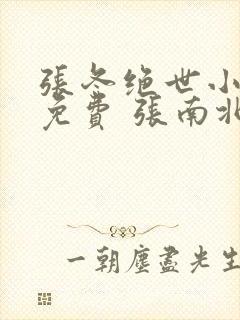 張冬绝世小
免費 張南北
一朝塵盡光生